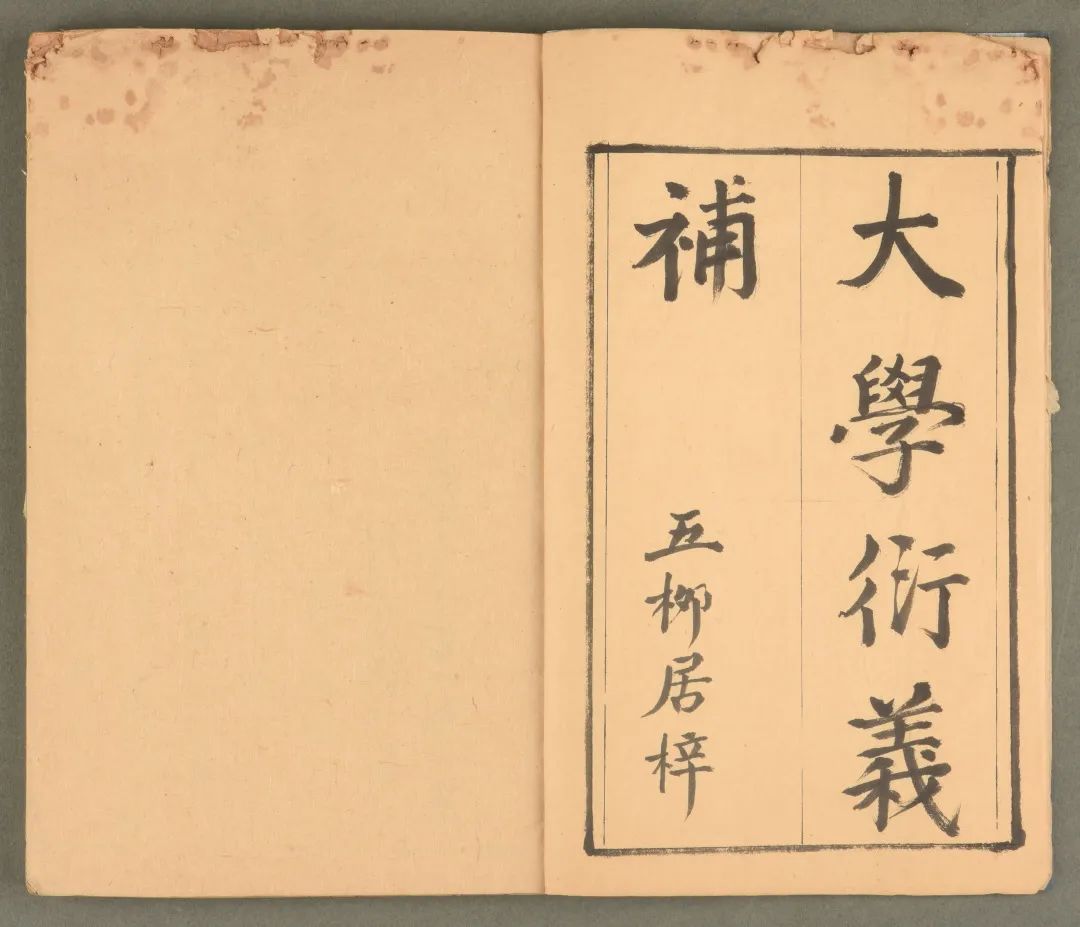 大學衍義
補
五柳居梓